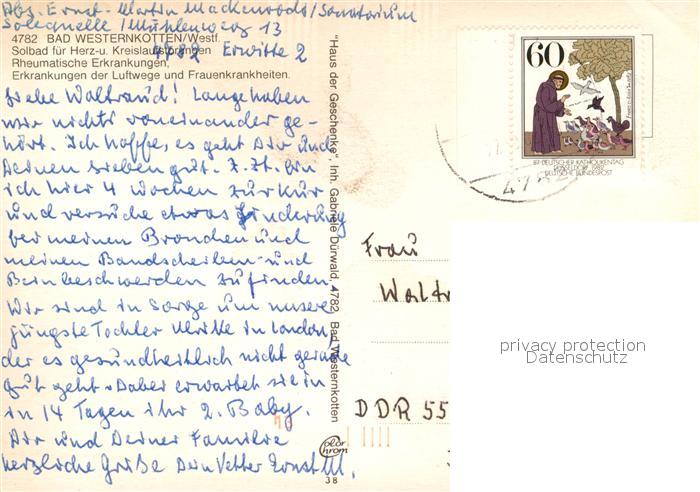 Abs. Ernst-Martin Mackenrodt/Sanatorium
Solequelle/Mühlenweg 13
4782 BAD WESTERNKOTTEN/Westf.
4782 Erwitte 2
Solbad für Herz-u. Kreislaufstörungen
Rheumatische Erkrankungen,
Erkrankungen der Luftwege und Frauenkrankheiten.
Liebe Waltraud! Lange haben
wir nichts voneinander ge-
hört. Ich hoffe, es geht Dir und
Deinen Lieben gut. Z. Zt. bin
ich hier 4 Wochen zur Kur
und versuche etwas Linderung
bei meinen Bronchen und
meinen Bandscheiben- und
Beinbeschwerden zu finden.
Wir sind in Sorge um unsere
jüngste Tochter Ulrike in London,
der es gesundheitlich nicht gerade
gut geht. Dabei erwartet sie in
in 14 Tagen ihr 2. Baby.
Dir und Deiner Familie
herzliche Grüße Dein Vetter Ernst M.
"Haus der Geschenke", Inh. Gabriele Dürwald, 4782 Bad Westernkotten
color
chrom
38
60
87. DEUTSCHER KATHOLIKENTAG
DÜSSELDORF 1982
DEUTSCHE BUNDESPOST
4782
Frau
Waltr
DDR 55
privacy protection
Datenschutz